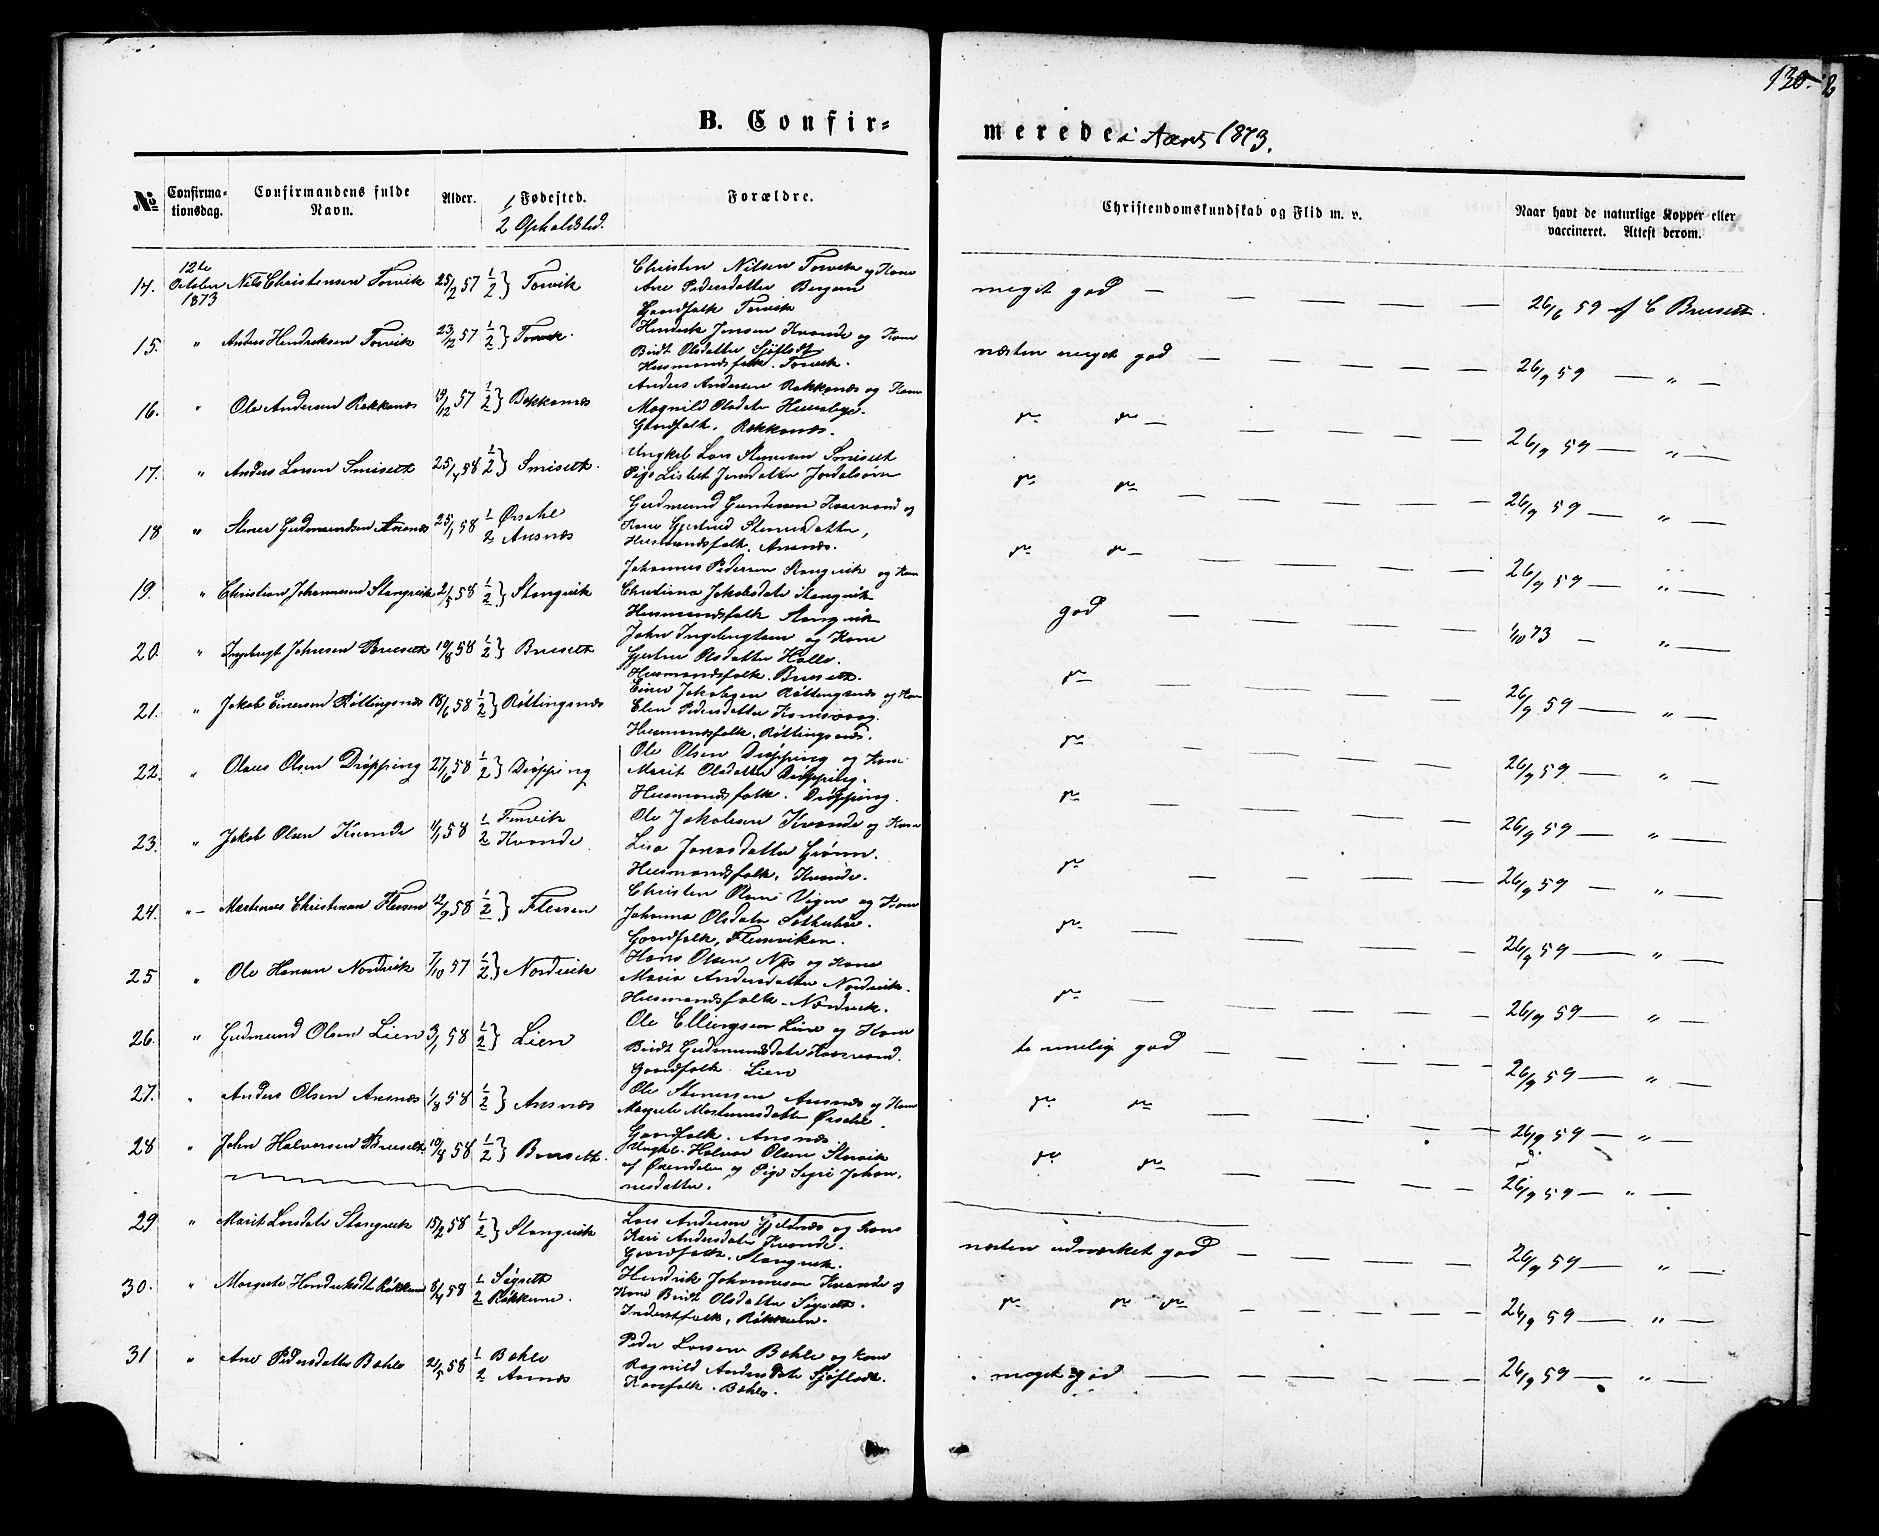 130. b
B. Confir-
merede i Aaret 1873.
No
Confirma-
tionsdag.
Confirmandens fulde
Navn.
Alder.
1 Fødested.
2 Opholdsted.
Forældre.
Christendomskundskab og Flid m. v.
Naar havt de naturlige Kopper eller
vaccineret. Attest derom.
14. 12te October 1873 Nils Christensen Torvik 25/2 57 1/2 } Torvik
Christen Nilsen Torvik og Kone
Ane Pedersdatter Bergem
Gaardfolk Torvik
meget god — — — — — 26/6 59 af C Brusett.
15. " Anders Hendriksen Torvik 23/2 57 1/2 } Torvik.
Hendrik Jensen Kvande og Kone
Birdt Olsdatter Sjøflodt
Husmandsfolk. Torvik.
næsten meget god — — — — 26/9 59 — " —
16. " Ole Andersen Røkkenæs 19/12 57 1/2 } Røkkenæs
Anders Andersen Røkkenæs og Kone
Magnild Olsdatr Husebye.
Gaardfolk. Røkkenæs.
do do — — — — 26/9 59 — " —
17. " Anders Larsen Smisett 25/4 58 1/2 } Smisett.
Ungkel Lars Stenersen Smisett
Pige Lisbet Jensdatter Jordalsøren
do do — — — — 26/9 59 — " —
18 " Stener Gudmundsen Aasnæs 25/1 58 1 Ørsahl
2 Aasnæs
Gudmund Gundersen Kaarvand og
Kone Gjertrud Stenersdatter,
Husmandsfolk. Aasnæs.
do do — — — — 26/9 59 — " —
19. " Christian Johannesen Stangvik 2/5 58 1/2 } Stangvik
Johannes Pedersen Stangvik og Kone
Christiana Jakobsdatr Stangvik
Husmandsfolk Stangvik
god — — — — 1/10 73 — " —
20. " Ingebrigt Johnsen Brusett 19/8 58 1/2 } Brusett
John Ingebrigtsen og Kone
Gjertru Olsdatter Halle.
Husmandsfolk. Brusett.
do — — — — 26/9 59 — " —
21. " Jakob Einersen Røttingsnæs 18/6 58 1/2 } Røttingsnæs
Einer Jakobsen Røttingsnæs og Kone
Elen Pedersdatter
Husmandsfolk. Røttingsnæs.
do — — — — 26/9 59 — " —
22. " Olaus Olsen Drøpping 27/6 58 1/2 } Drøpping
Ole Olsen Drøpping og Kone
Marit Olsdatter Drøpping.
Husmandsfolk. Drøpping.
do — — — — 26/9 59 — " —
23. " Jakob Olsen Kvande 1/1 58 1 Torvik
2 Kvande.
Ole Jakobsen Kvande og Kone
Lisa Jonasdatter Grønn.
Husmandsfolk, Kvande.
do — — — — 26/9 59 — " —
24. " Martinus Christensen Flessen 12/9 58 1/2 } Flessen
Christen Olsen Vigen og Kone
Johanna Olsdatr
Gaardfolk, Flesaviken.
do — — — — 26/9 59 — " —
25 " Ole Hansen Nordvik 7/10 57 1/2 } Nordvik
Hans Olsen Næs og Kone
Maria Andersdatter Nordvik.
Husmandsfolk. Nordvik.
do — — — — 26/9 59 — " —
26. " Gudmund Olsen Lien 3/1 58 1/2 } Lien
Ole Ellingsen Lien og Kone
Birdt Gudmundsdatr Kaarvand.
Gaardfolk. Lien
temmelig god — — — — 26/9 59 — " —
27. " Anders Olsen Aasnæs 1/8 58 1/2 } Aasnæs
Ole Stenersen Aasnæs og Kone
Margrete Mortensdatter Ørsahl.
Gaardfolk. Aasnæs.
do do — — — — 26/9 59 — " —
28 " John Halvorsen Brusett 19/8 58 1/2 } Brusett.
Ungkel. Halvor Olsen Storvik
af Øxendalen og Pige Sigri Johan-
nesdatter.
do do — — — — 26/9 59 — " —
29 " Marit Larsdatr Stangvik 15/2 58 1/2 } Stangvik
Lars Andersen Gjeldnæs og Kone
Kari Andersdatr Kvande.
Gaardfolk. Stangvik.
næsten udmærket god — — — — 26/9 59 — " —
30. " Margrete Hendriksdt Røkkum 8/4 58 1 Sogsett
2 Røkkum.
Hendrik Johannesen Kvande og
Kone Birdt Olsdatter Sogsett.
Inderstfolk, Røkkum.
do do do — — — — 26/9 59 — " —
31 " Ane Pedersdatter Bøhle 21/5 58 1 Bøhle
2 Aasnæs
Peder Larsen Bøhle og Kone
Ragnild Andersdatr Sjøflodt.
Kaarfolk. Bøhle.
meget god — — — — 26/9 59 — " —